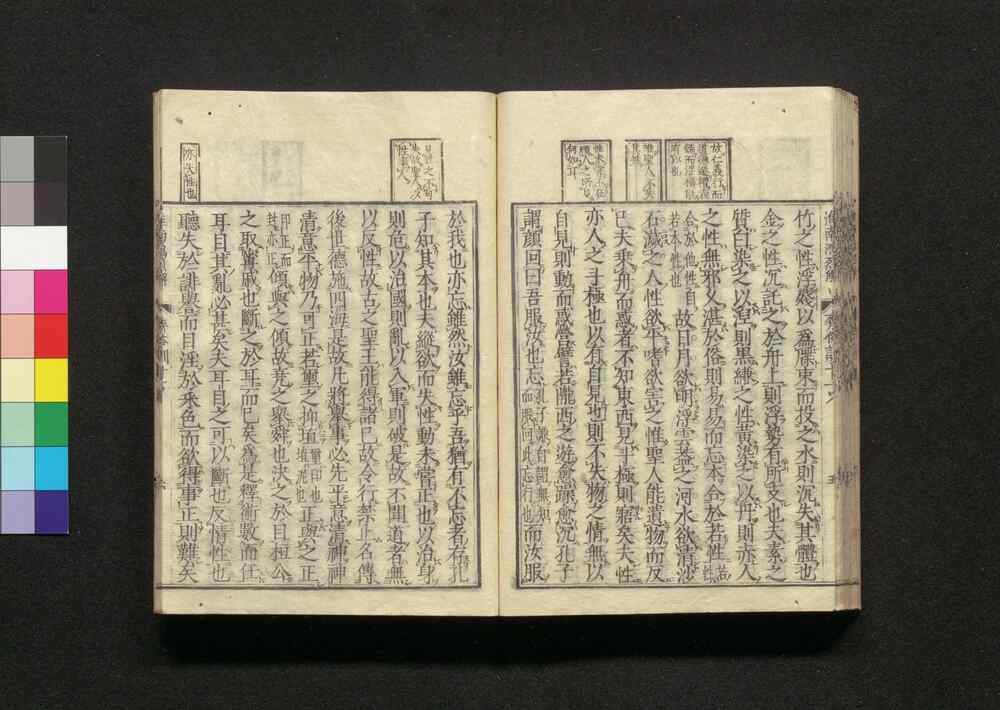 竹之性浮殘以爲牒束而投之水則沉失其體也
金之性沉託之於舟上則浮勢有所支也夫素之
質白染之以涅則黒縑之性黄染之以丹則亦人
之性無邪久湛於俗則易易而忘本合於若性若性
合於他性自若本性也故日月欲明浮雲蓋之河水欲清沙
石濊之人性欲平嗜欲害之惟聖人能遺物而反
已夫乗舟而惑者不知東西見斗極則寤矣夫性
亦人之斗極也以有自見也則不失物之情無以
自見則動而惑營譬若隴西之遊愈躁愈沉孔子
謂顔回曰吾服汝也忘孔子謙自謂無知而服回此忘行也而汝服
於我也亦忘雖然汝雖忘乎吾猶有不忘者存孔
子知其本也夫縱欲而失性動未嘗正也以治身
則危以治國則亂以入軍則破是故不聞道者無
以反性故古之聖王能得諸己故令行禁止名傳
後世德施四海是故凡將舉事必先平意清神神
清意平物乃可正若璽之抑埴璽印也埴泥也正與之正
印正而封亦正傾與之傾故堯之舉舜也決之於目桓公
之取甯戚也斷之於耳而已矣爲是釋術數而任
耳目其亂必甚矣夫耳目之可以斷也反情性也
聽失於誹譽而目淫於采色而欲得事正則難矣